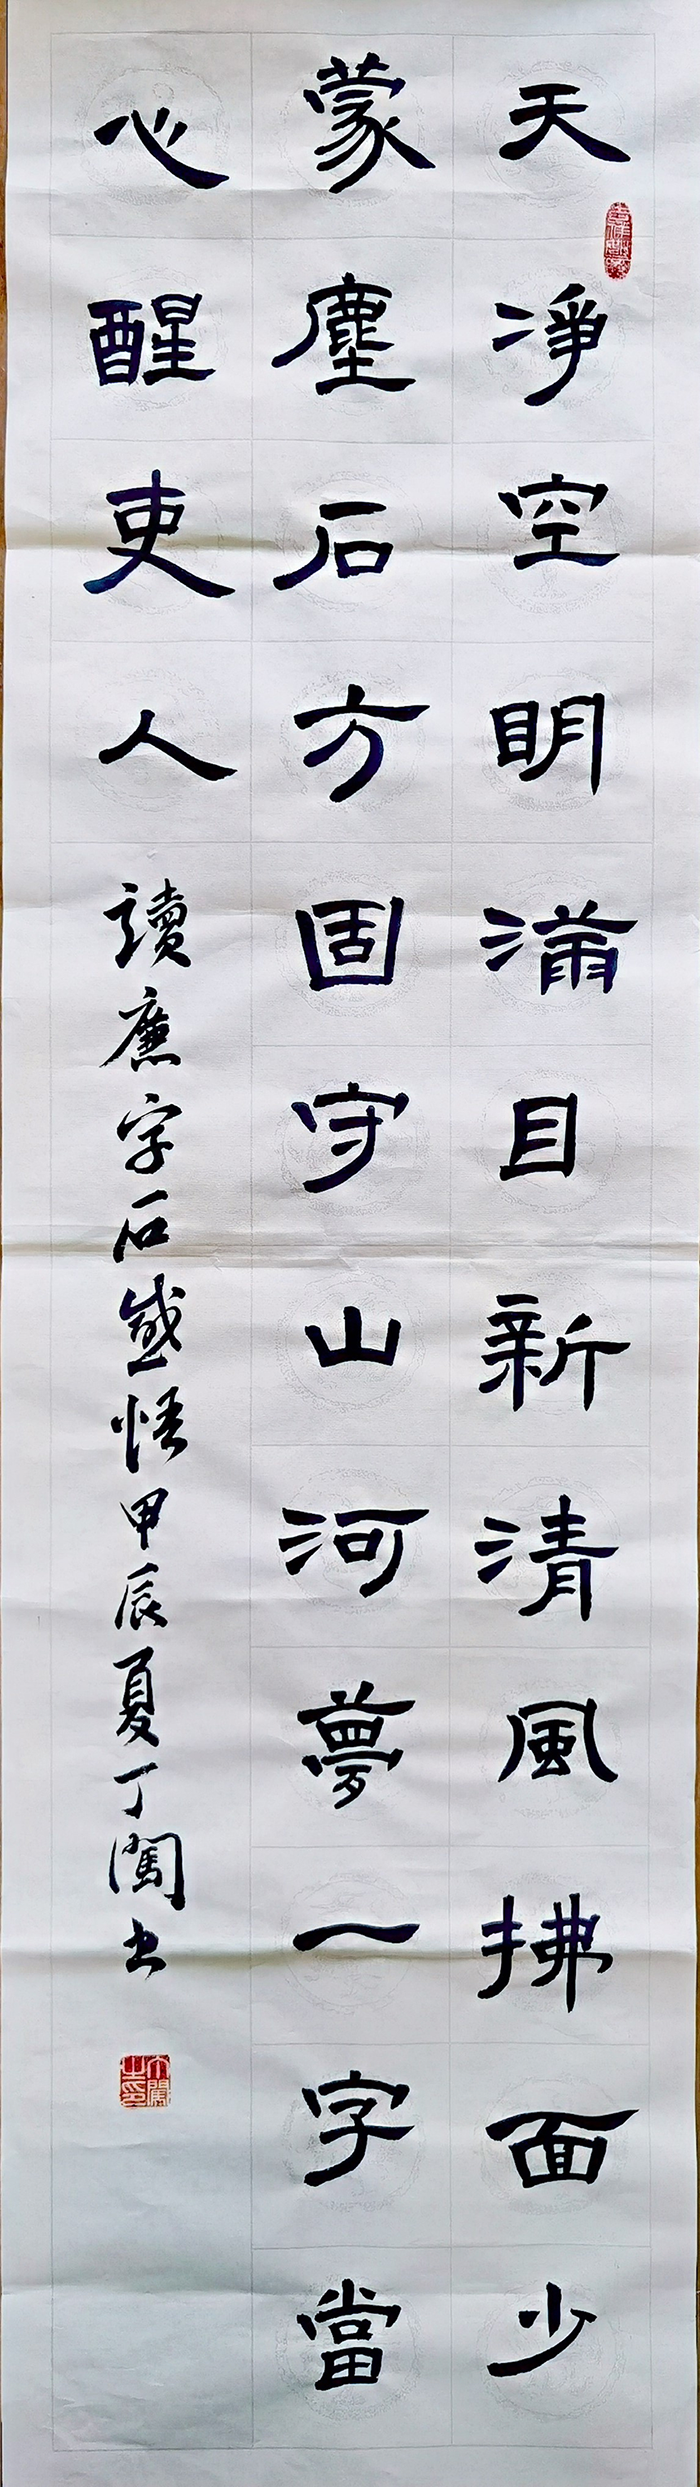 天淨空明滿目新清風拂面少
蒙塵石方固守山河夢一字當
心醒吏人
讀廉字石感悟甲辰夏丁闖書
丁闖之印